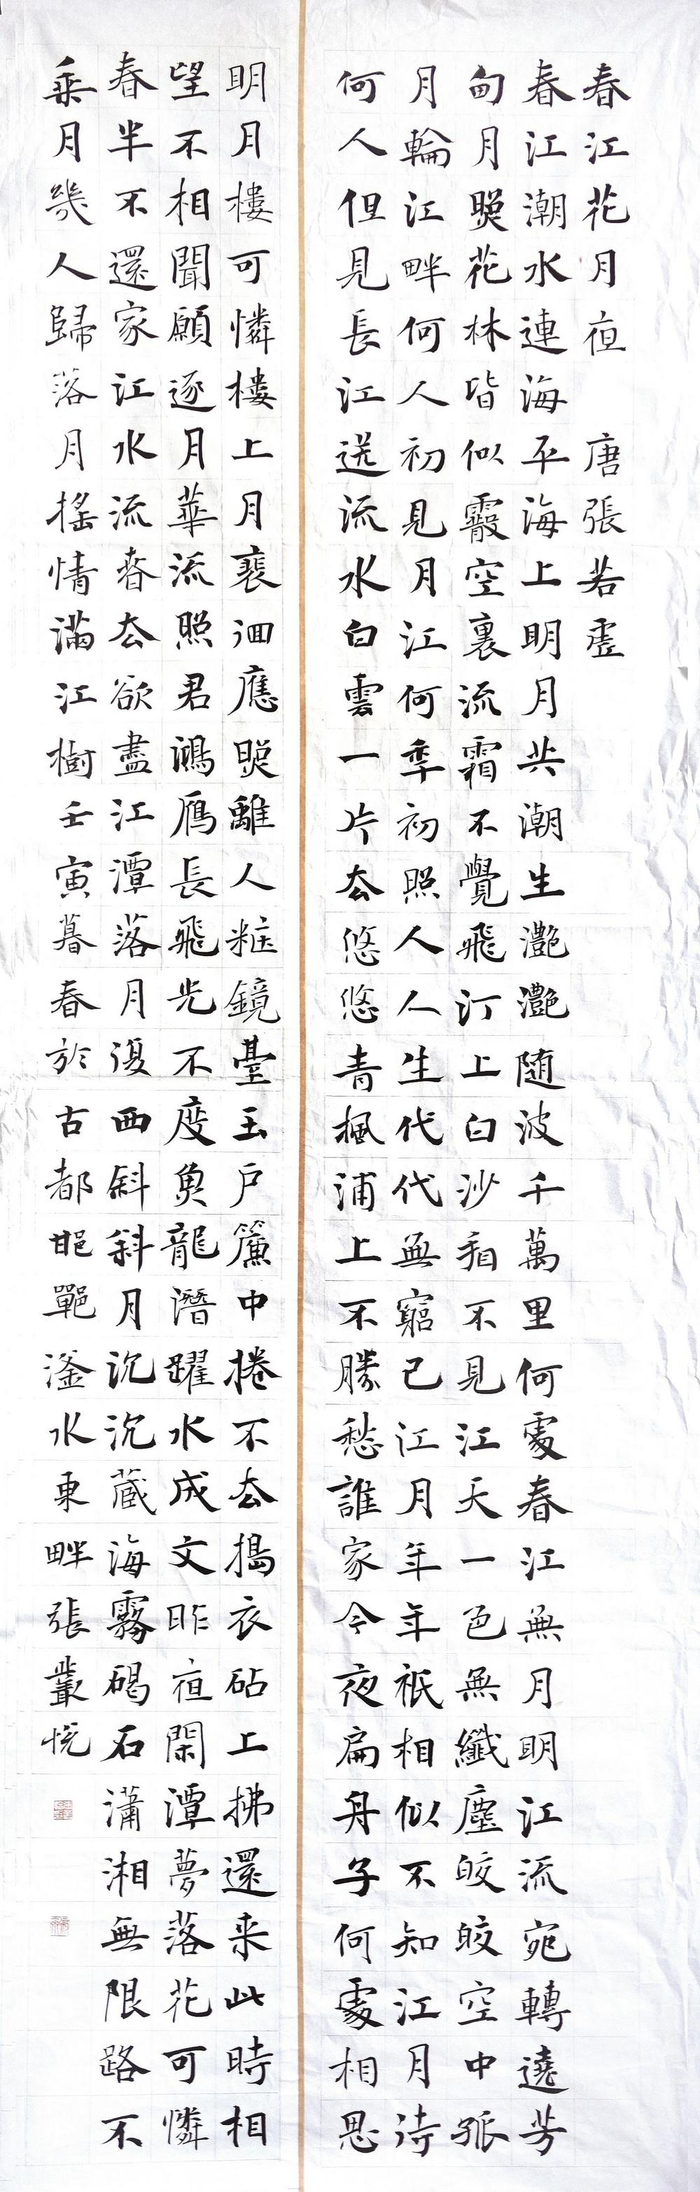 春江花月亱 唐張若虛
春江潮水連海平海上明月共潮生灩灩隨波千萬里何處春江無月明江流宛轉遶芳
甸月暎花林皆似霰空裏流霜不覺飛汀上白沙看不見江天一色無纖塵皎皎空中孤
月輪江畔何人初見月江何年初照人人生代代無窮已江月年年祇相似不知江月待
何人但見長江送流水白雲一片去悠悠青楓浦上不勝愁誰家今夜扁舟子何處相思
明月樓可憐樓上月裴徊應暎離人粧鏡臺玉戶簾中捲不去搗衣砧上拂還来此時相
望不相聞願逐月華流照君鴻雁長飛光不度魚龍潛躍水成文昨亱閑潭夢落花可憐
春半不還家江水流春去欲盡江潭落月復西斜斜月沉沉藏海霧碣石瀟湘無限路不
乘月幾人歸落月搖情滿江樹壬寅暮春於古都邯鄲滏水東畔張叢悅